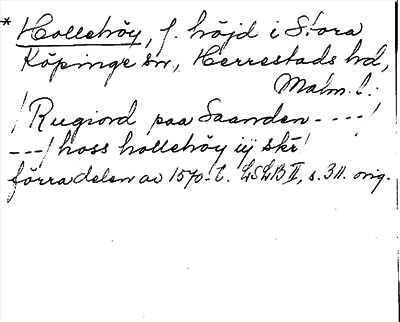 * Hollehöy, f. höjd i Stora
Köpinge sn, Herrestads hd,
Malm. l.
/ Rugiord paa Saanden - - - - /
- - - / hoss hollehöy iij skr /
förra delen av 1570-t. LSLB II, s. 311. orig.